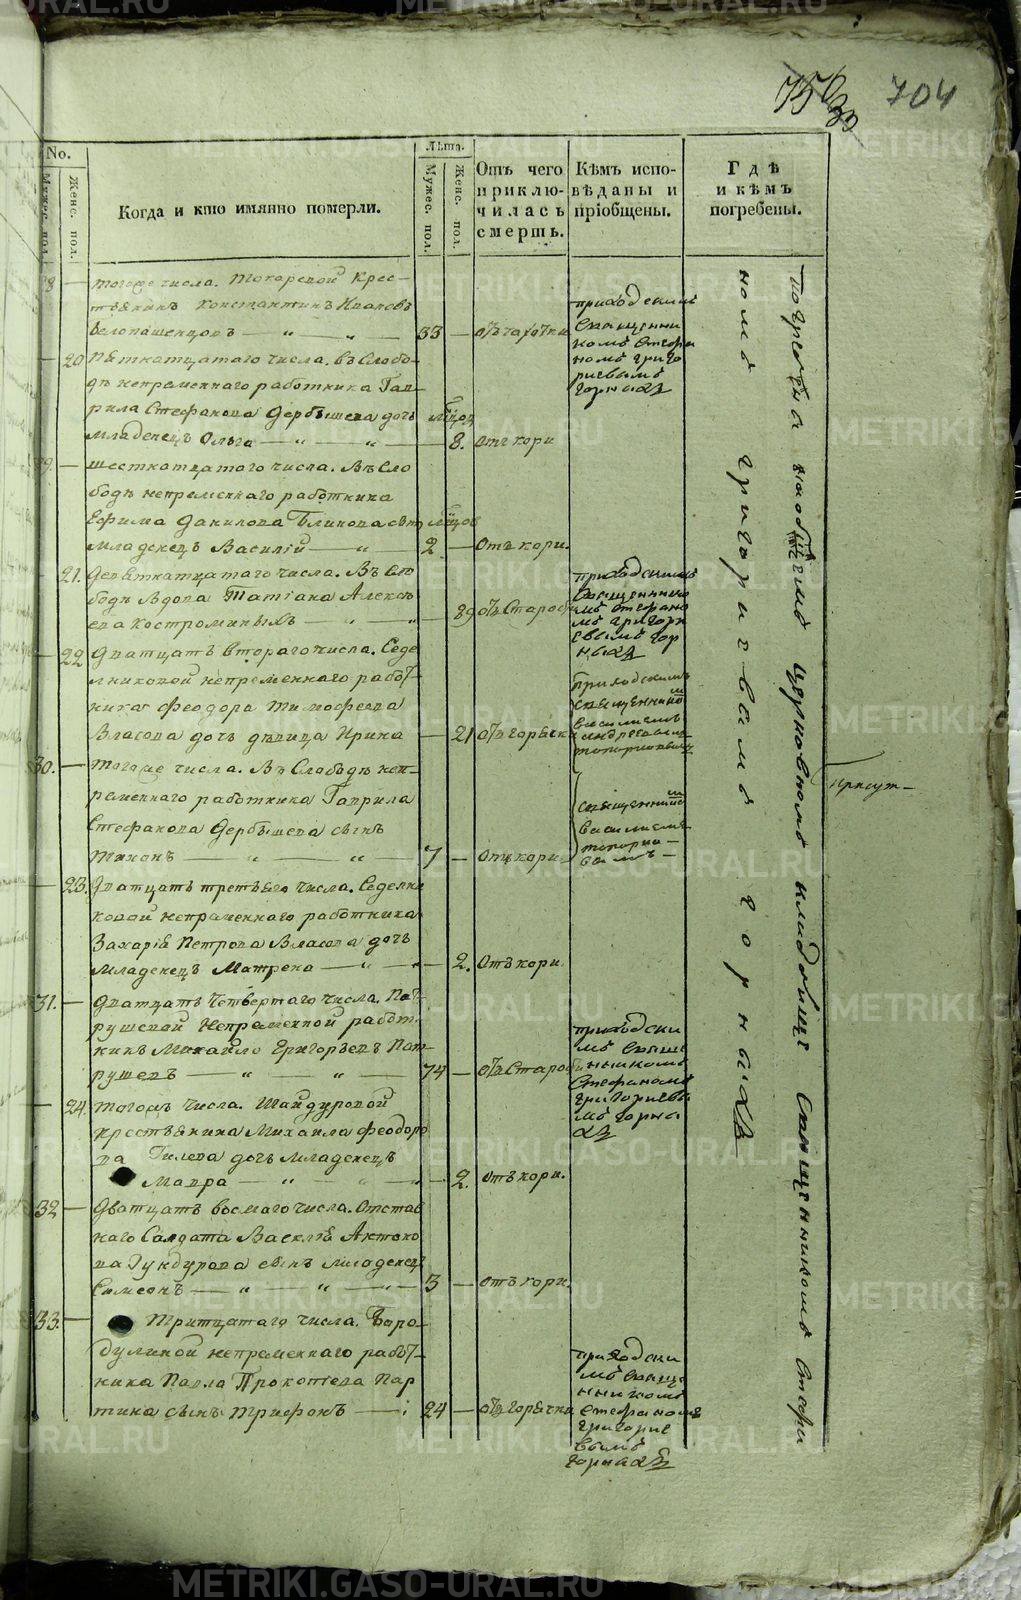 704
No.
Мужес. пол.
Женс. пол.
Когда и кто имянно померли.
Лѣта.
Мужес. пол.
Женс. пол.
Отъ чего
приклю-
чилась
смерть.
Кѣмъ испо-
вѣданы и
прiобщены.
Гдѣ
и кѣмъ
погребены.
28 — тогоже числа. Токаревой крес-
тьянинъ Константинъ Ивановъ
Белопашенцовъ — „ — „ 33 — отъ горячки
приходскимъ
Священни
комъ Стефа
номъ Григо
риевымъ
Горныхъ
— 20 Пятнатцатаго числа. въ Слобо-
дѣ непременнаго работника Гав-
рила Стефанова Дербышева дочь мѣцов
младенецъ Ольга — „ — „ — 8. отъ кори
29. — шестнатцатаго числа. Въ Сло
бодѣ непременнаго работника
Ефима Данилова Блинова сынъ мѣцов
младенецъ Василiй — „ 2 — отъ кори.
— 21. Девятнатцатаго числа. Въ Сло
бодѣ вдова Татiана Алексѣ
ева Костроминыхъ — „ — „ 89 отъ Старости
приходскимъ
Священнико
мъ Стефано
мъ Григори
евымъ Гор
ныхъ
— 22 Дватцать втораго числа. Седе
лниковой непременнаго работ-
ника Феодора Тимофеева
Власова дочь дѣвица Ирина — 21 отъ горячки
приходскимъ
священникомъ
василиемъ
андреевымъ
топорковымъ
30. — тогоже числа. Въ Слободѣ неп-
ременнаго работника Гаврила
Стефанова Дербышева сынъ
Тихонъ — „ — „ 7 — отъ кори.
священникомъ
василиемъ
топорко-
вымъ —
— 23. Дватцать третьяго числа. Седелни
ковой непременнаго работника
Захарiя Петрова Власова дочь
младенецъ Матрена — „ — 2. отъ кори.
31. — Дватцать четвертаго числа. Пат-
рушевой непременной работ-
никъ Михайло Григорьевъ Пат-
рушевъ — „ — „ — 74 — отъ Старости
приходски
мъ Свяще
нникомъ
Стефаномъ
Григориевы
мъ Горны
хъ
— 24. тогожъ числа. Шайдуровой
крестьянина Михаила Феодоро
ва Гилева дочь младенецъ
Мавра — „ — „ — „ 2. отъ кори.
32 — Дватцать восмаго числа. Отстав
наго Солдата Василiя Антоно
ва Гундурова сынъ младенецъ
Симеонъ — „ — „ — „ 3 — отъ кори.
33. — Тритцатаго числа. Боро-
дулиной непременнаго работ-
ника Павла Прокопiева Пар
тина сынъ Трифонъ — : 24 — отъ горячки
приходски
мъ Свяще
нникомъ
Стефаномъ
Григорие
вымъ
Горныхъ
погребены на общемъ церковномъ кладбище Священникомъ Стефа
номъ Григориевымъ Горныхъ
присут-
METRIKI.GASO-URAL.RU